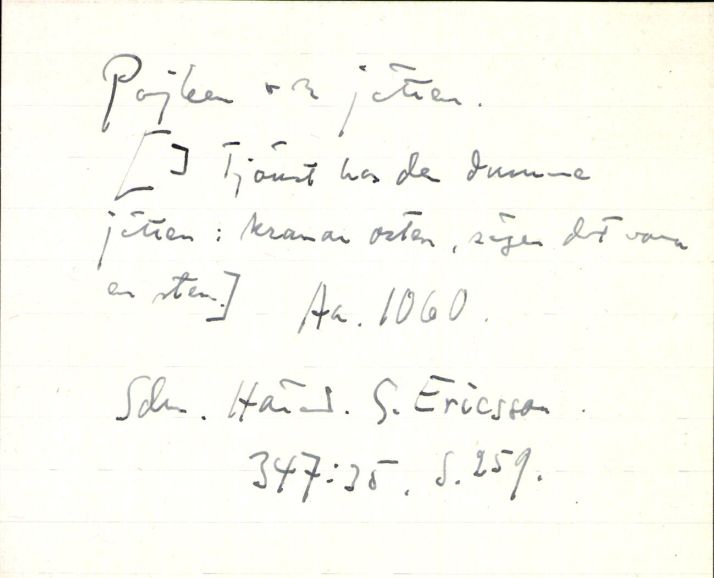 Pojken och jätten.
[] Tjänst hos den dumme
jätten: kramar osten, säger det vara
en sten.] Aa. 1060.
Sdm. G. Ericsson.
347:35. S. 259.